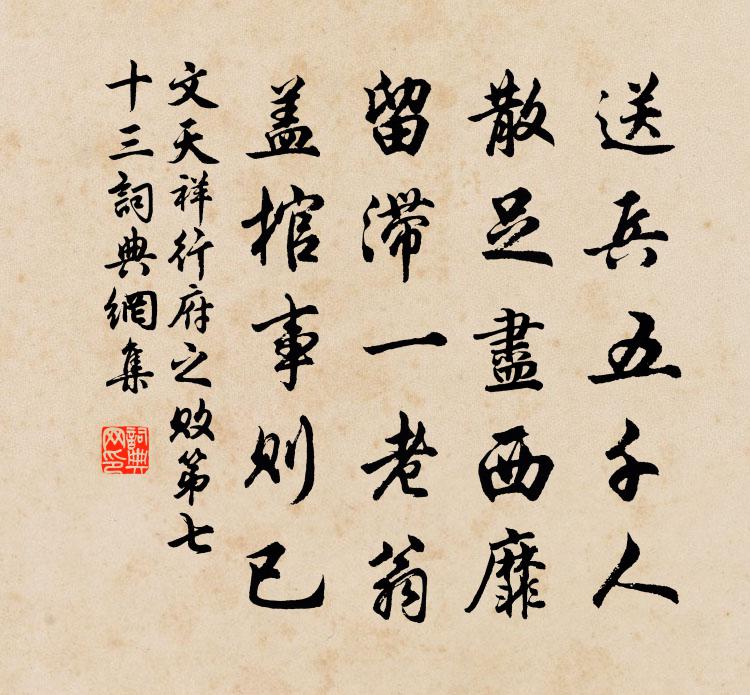 送兵五千人
散足盡西靡
留滯一老翁
蓋棺事則已
文天祥行府之敗第七
十三詞典網集
詞典网印